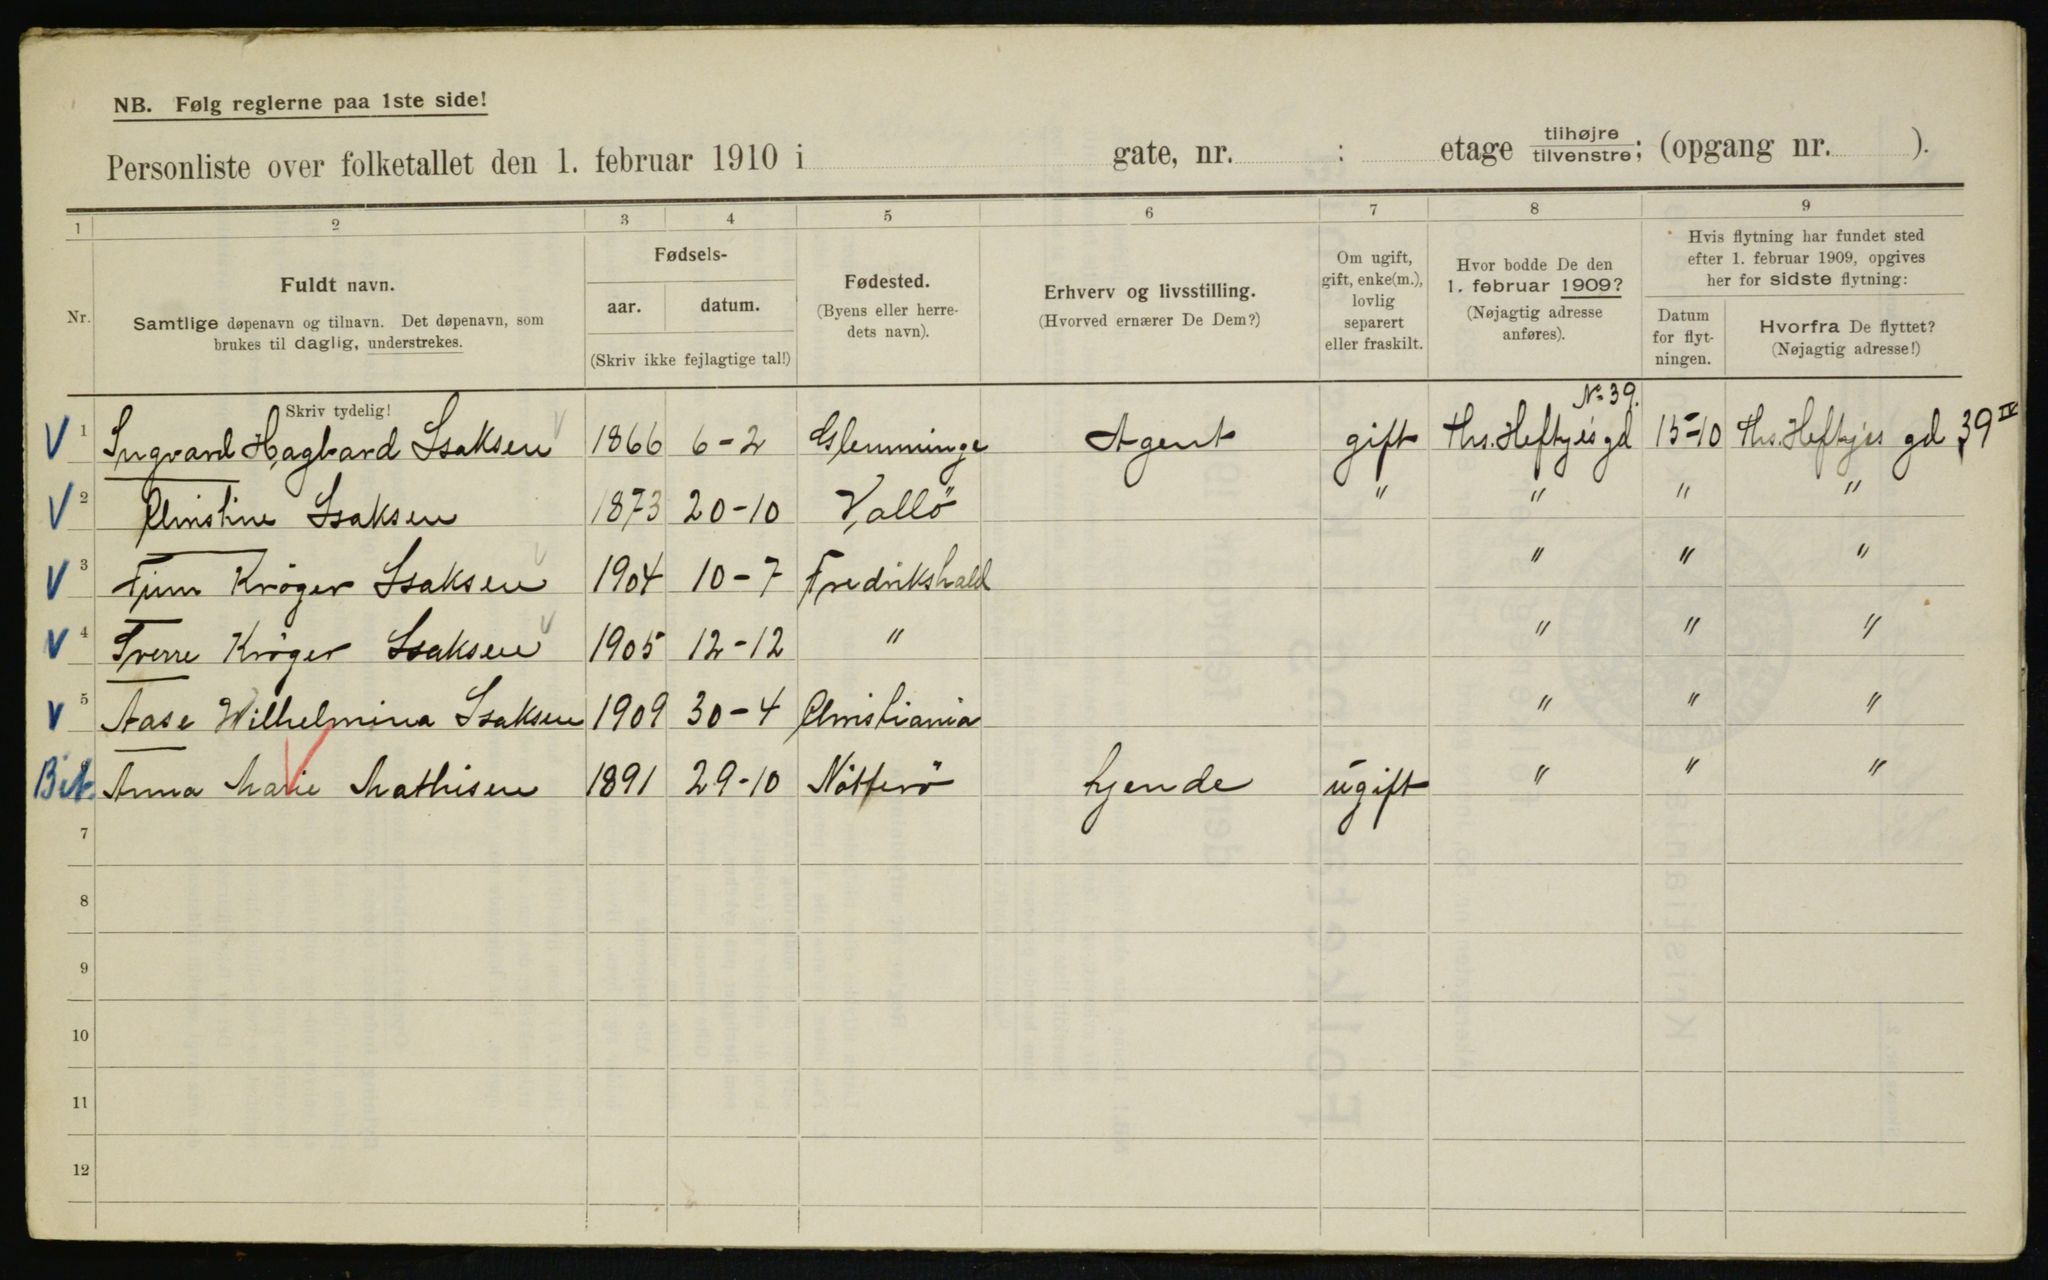 NB. Følg reglerne paa 1ste side!
Personliste over folketallet den 1. februar 1910 i gate, nr. : etage tilhøjre/tilvenstre; (opgang nr. ).
1 2 3 4 5 6 7 8 9
Nr.
Fuldt navn.
Samtlige døpenavn og tilnavn. Det døpenavn, som
brukes til daglig, understrekes.
Skriv tydelig!
Fødsels-
aar. datum.
(Skriv ikke fejlagtige tal!)
Fødested.
(Byens eller herre-
dets navn).
Erhverv og livsstilling.
(Hvorved ernærer De Dem?)
Om ugift,
gift, enke(m.),
lovlig
separert
eller fraskilt.
Hvor bodde De den
1. februar 1909?
(Nøjagtig adresse
anføres).
Hvis flytning har fundet sted
efter 1. februar 1909, opgives
her for sidste flytning:
Datum
for flyt-
ningen.
Hvorfra De flyttet?
(Nøjagtig adresse!)
No 39.
V 1 Ingvard Hagbard Isaksen 1866 6-2 Glemminge Agent gift Ths. Heftyes gd 15-10 Ths. Heftyes gd 39 IV
V 2 Christine Isaksen 1873 20-10 Vallö " " " "
V 3 Finn Krøger Isaksen 1904 10-7 Fredrikshald " " "
V 4 Sverre Krøger Isaksen 1905 12-12 " " " "
V 5 Aase Wilhelmina Isaksen 1909 30-4 Christiania " " "
Anna Marie Mathisen 1891 29-10 Nötterö tjende ugift " " "
7
8
9
10
11
12